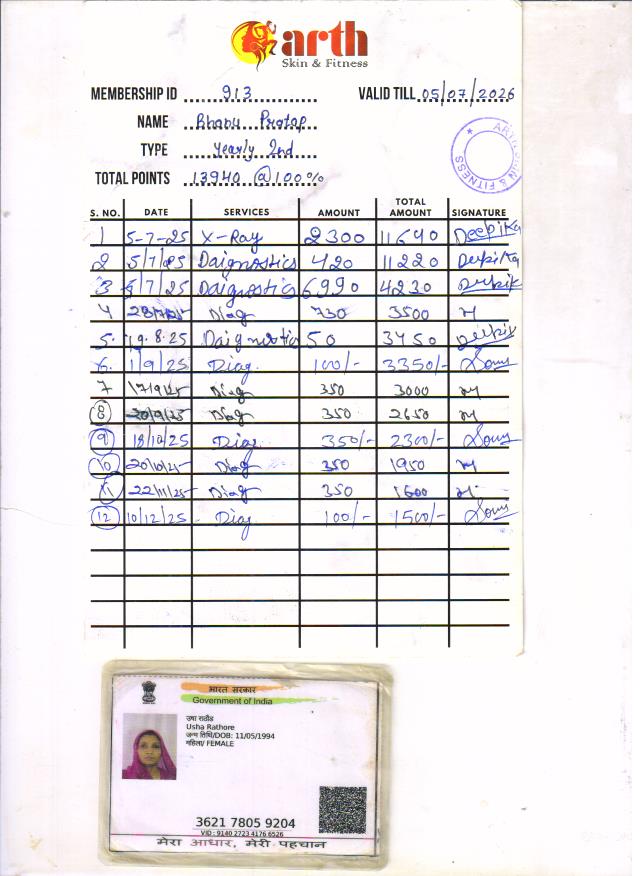 arth
Skin & Fitness
MEMBERSHIP ID 913 VALID TILL 05/07/2026
NAME Bhanu Pratap
TYPE Yearly 2nd
TOTAL POINTS 13940 @ 100%
ARTH SKIN & FITNESS
S. NO. DATE SERVICES AMOUNT TOTAL AMOUNT SIGNATURE
1 5-7-25 X-Ray 2300 11640 Deepika
2 5/7/25 Daignostics 420 11220 Deepika
3 5/7/25 Daignostics 6990 4230
4 Diag 730 3500
5. 19.8.25 Daignostic 50 3450
6. 1/9/25 Diag. 100/- 3350/-
7 17/9/25 Diag 350 3000
8 20/9/25 Diag 350 2650
9 18/10/25 Diag 350/- 2300/-
10 20/10/25 Diag 350 1950
11 22/11/25 Diag 350 1600
12 10/12/25 Diag 100/- 1500/-
भारत सरकार
Government of India
उषा राठौड
Usha Rathore
जन्म तिथि/DOB: 11/05/1994
महिला/ FEMALE
3621 7805 9204
VID : 9140 2723 4176 6526
मेरा आधार, मेरी पहचान